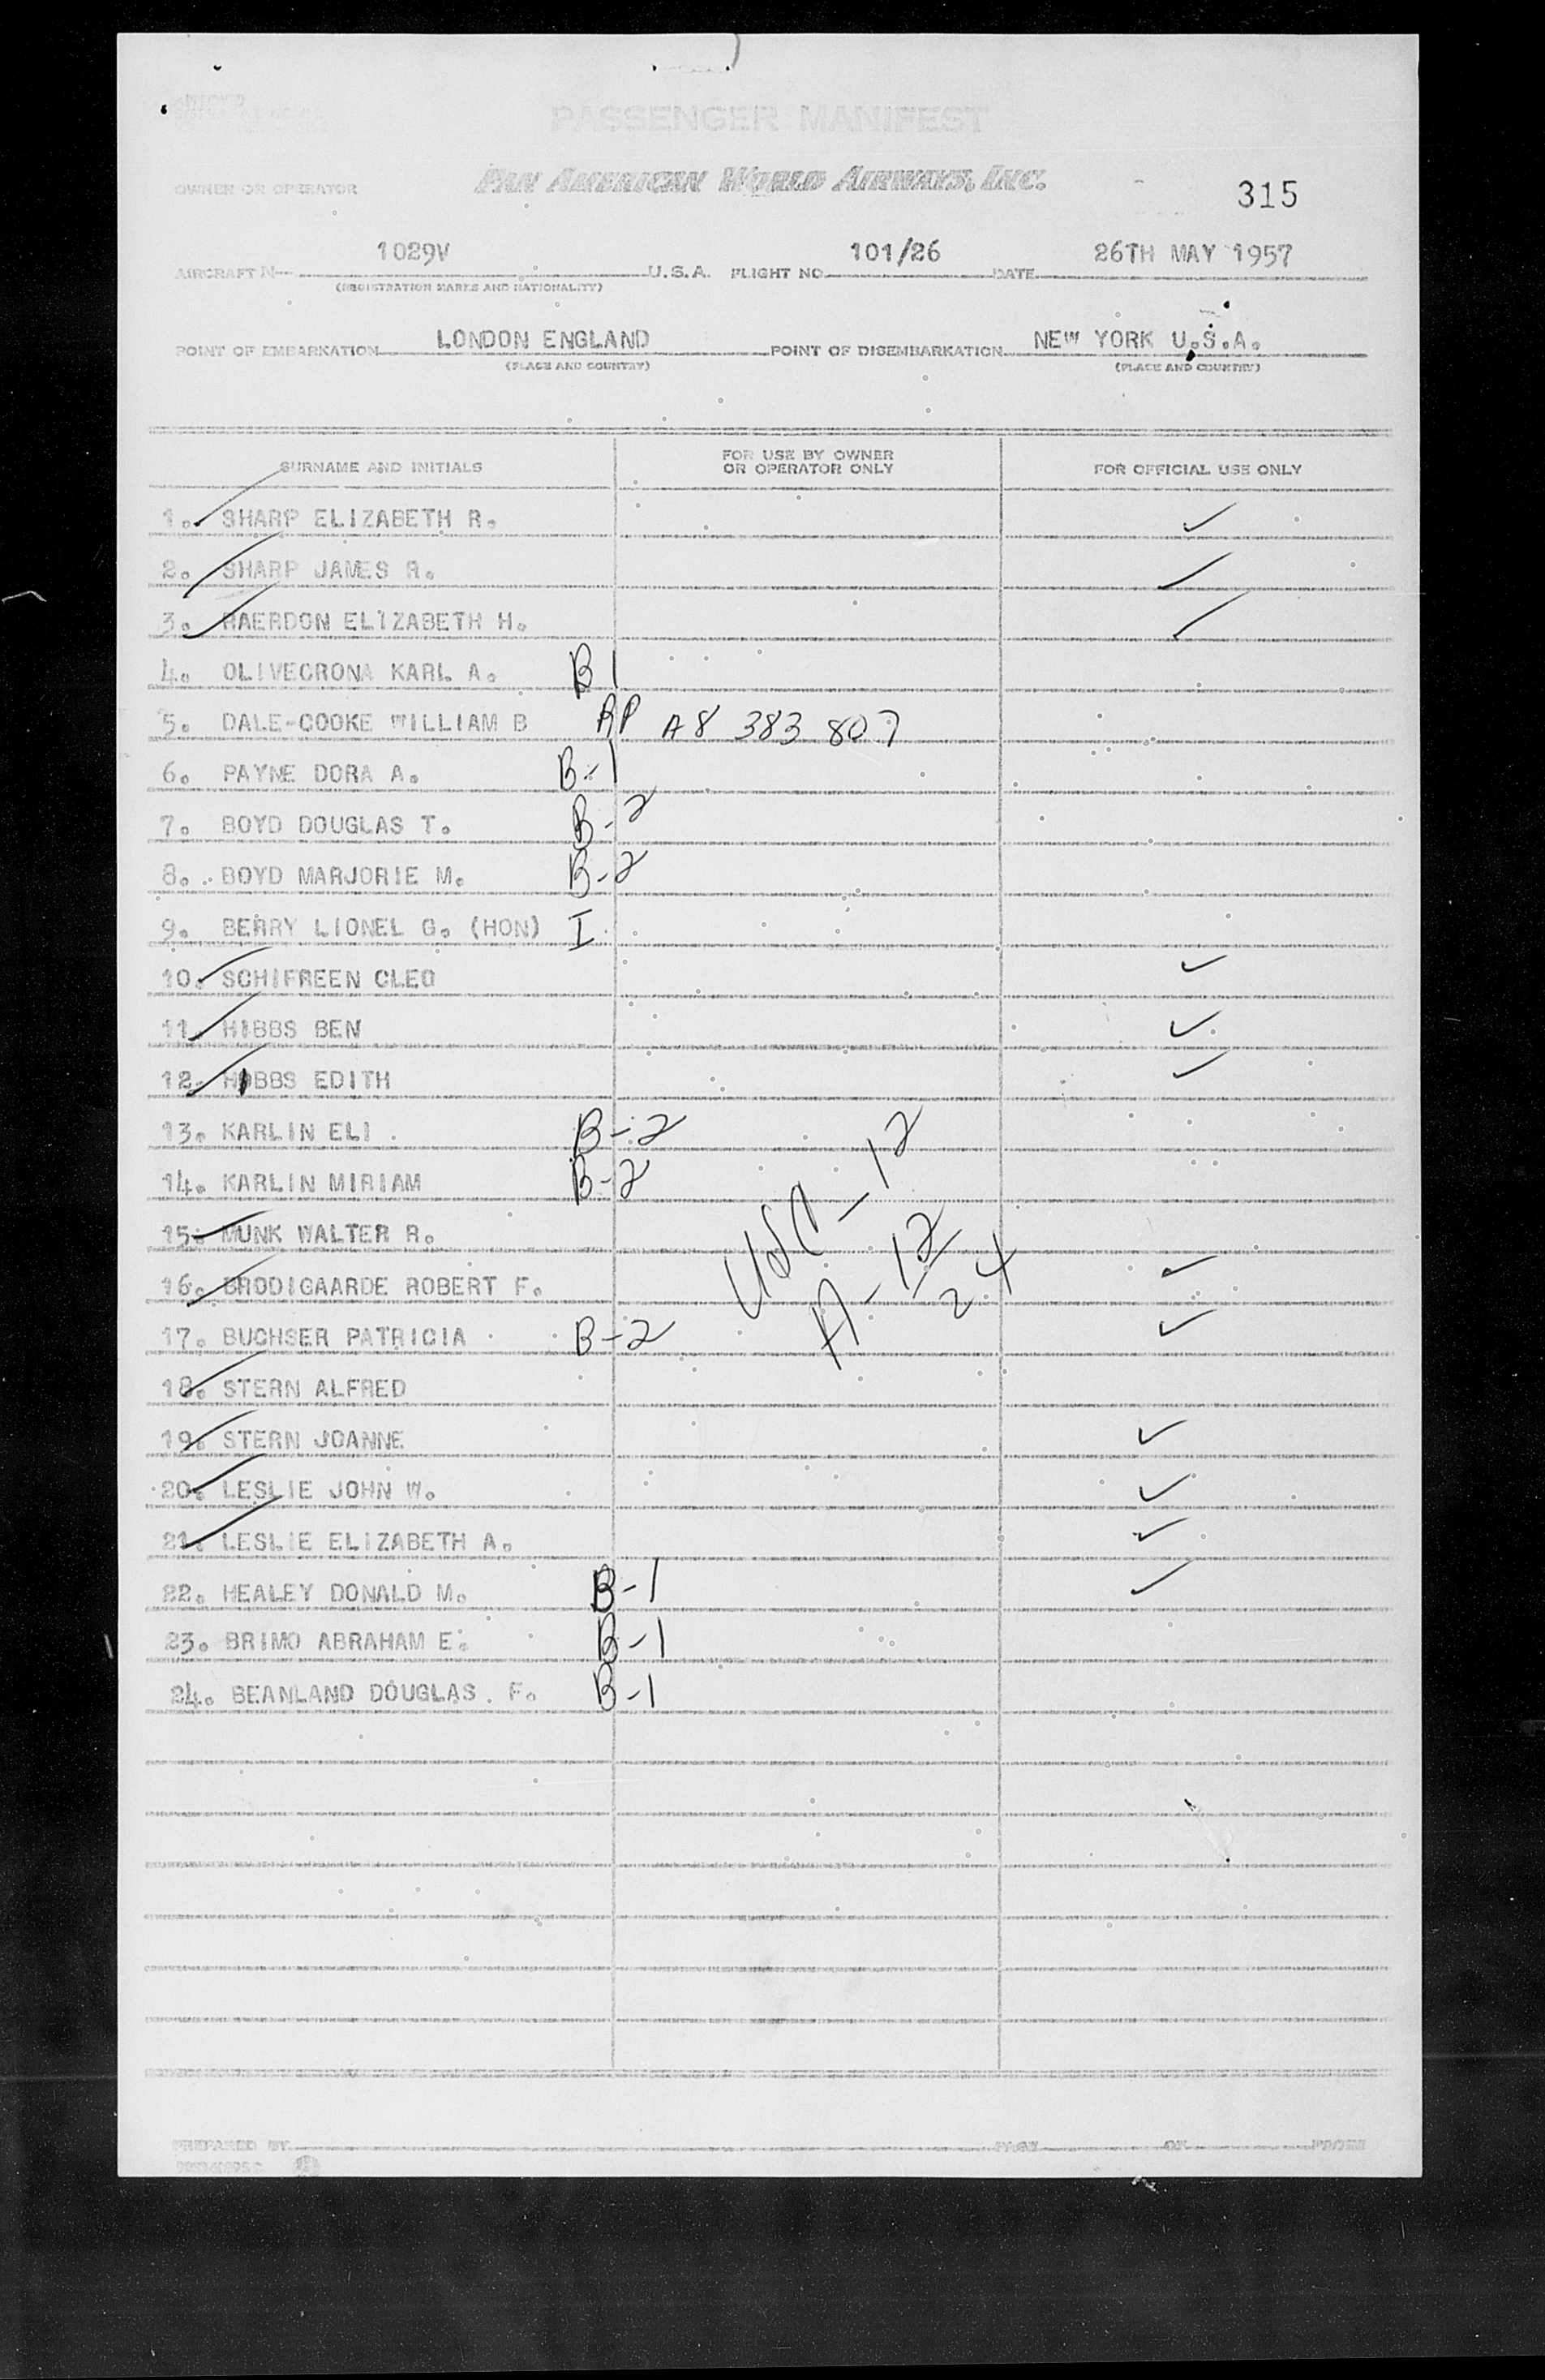 PASSENGER MANIFEST
OWNER OR OPERATOR PAN AMERICAN WORLD AIRWAYS, INC. 315
AIRCRAFT N— 1029V U.S.A. FLIGHT NO. 101/26 DATE 26TH MAY 1957
(REGISTRATION MARKS AND NATIONALITY)
POINT OF EMBARKATION LONDON ENGLAND POINT OF DISEMBARKATION NEW YORK U.S.A.
(PLACE AND COUNTRY) (PLACE AND COUNTRY)
SURNAME AND INITIALS FOR USE BY OWNER OR OPERATOR ONLY FOR OFFICIAL USE ONLY
1. SHARP ELIZABETH R. ✓
2. SHARP JAMES R. ✓
3. RAERDON ELIZABETH H. ✓
4. OLIVECRONA KARL A. B 1
5. DALE-COOKE WILLIAM B RP A8 383 807
6. PAYNE DORA A. B-1
7. BOYD DOUGLAS T. B-2
8. BOYD MARJORIE M. B-2
9. BERRY LIONEL G. (HON) I
10. SCHIFREEN CLEO ✓
11. HIBBS BEN ✓
12. HIBBS EDITH ✓
13. KARLIN ELI B-2
14. KARLIN MIRIAM B-2
USC - 12
15. MUNK WALTER R.
A - 12
16. BRODIGAARDE ROBERT F. ✓
24
17. BUCHSER PATRICIA B-2 ✓
18. STERN ALFRED
19. STERN JOANNE ✓
20. LESLIE JOHN W. ✓
21. LESLIE ELIZABETH A. ✓
22. HEALEY DONALD M. B-1 ✓
23. BRIMO ABRAHAM E. B-1
24. BEANLAND DOUGLAS F. B-1
PREPARED BY PAGE OF PAGES